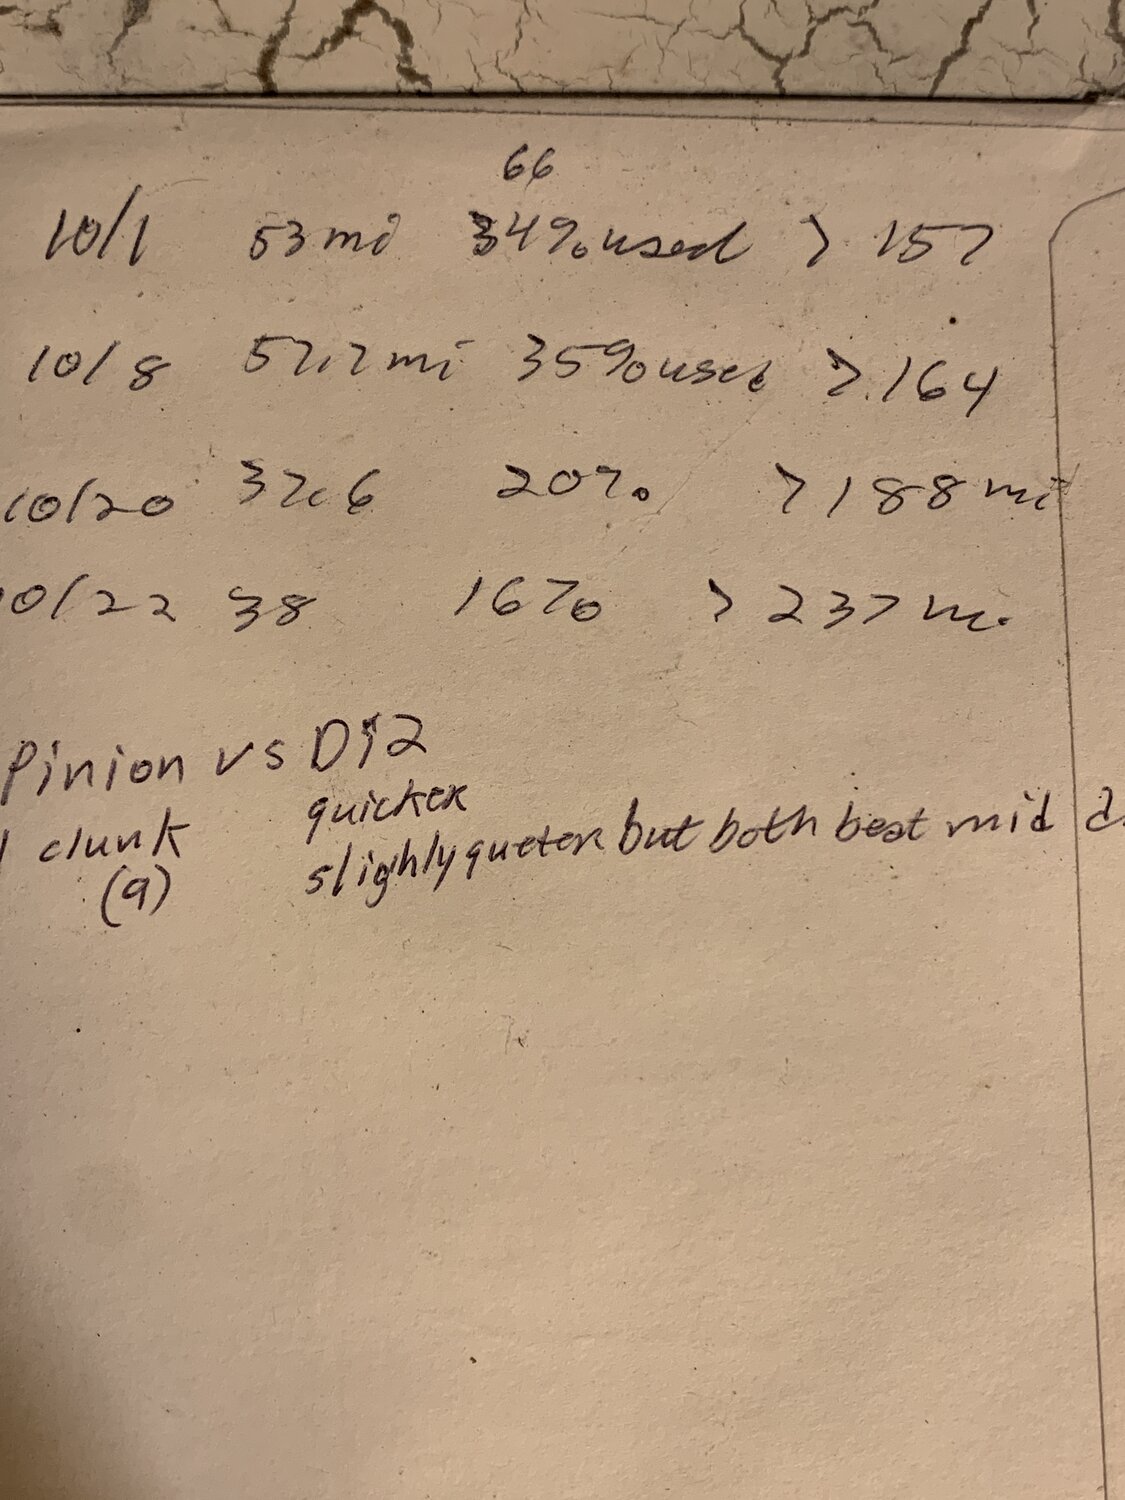 66
10/1 53 mi 34% used > 157
10/8 57.7 mi 35% used > 164
10/20 37.6 20% > 188 mi
0/22 38 16% > 237 mi
Pinion vs Di2
clunk quicker
(9) slighly queter but both best mid